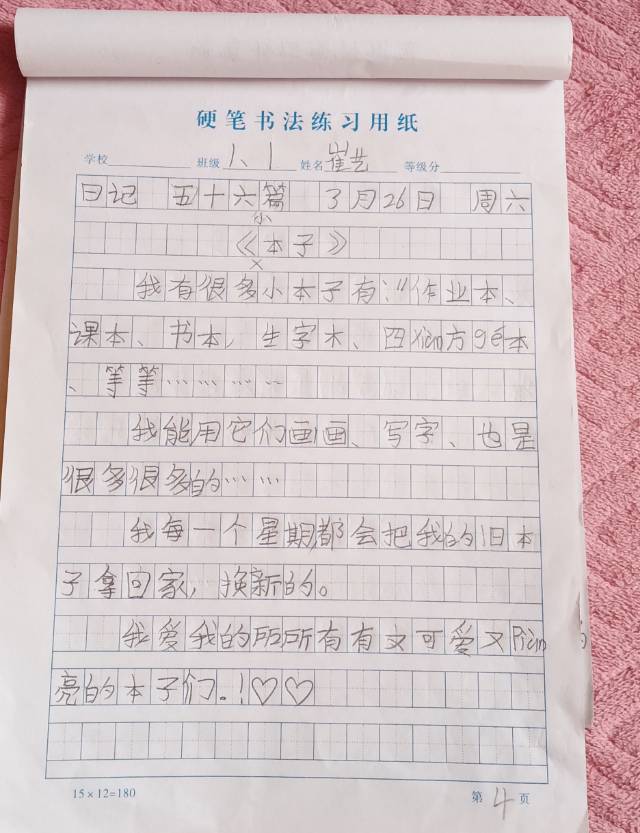 硬笔书法练习用纸
学校 班级 1、1 姓名 崔艺 等级分
日记 五十六篇 3月26日 周六
小
《本子》
我有很多小本子有:"作业本、
课本、书本,生字木、四xiàn方gé本
、等等……………
我能用它们画画、写字、也是
很多很多的……
我每一个星期都会把我的旧本
子拿回家,换新的。
我爱我的所所有有又可爱又Piàn
亮的本子们。!♡♡
15×12=180
第4页